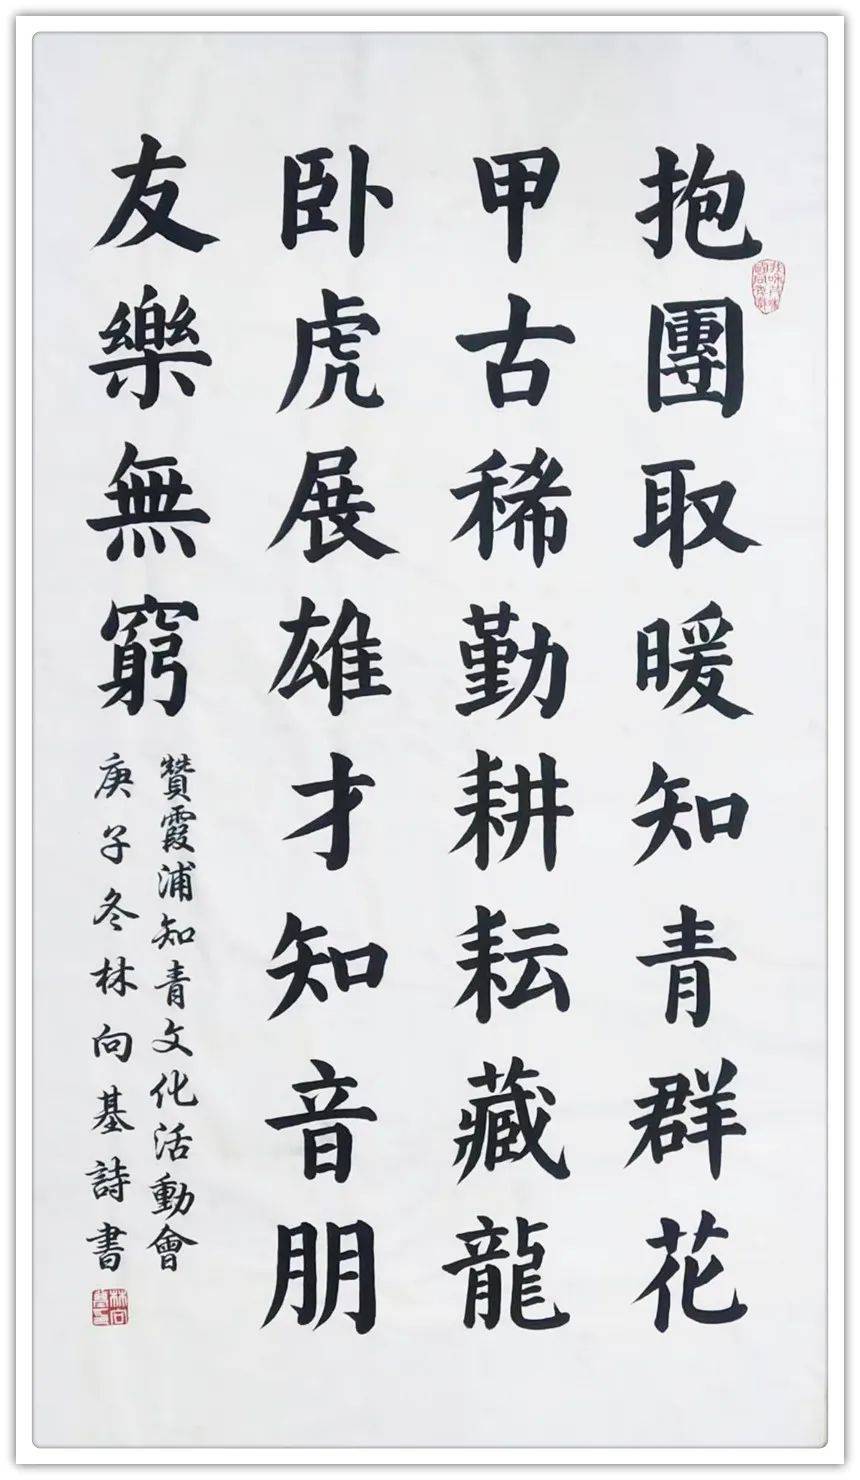 抱團取暖知青群花
甲古稀勤耕耘藏龍
卧虎展雄才知音朋
友樂無窮
贊霞浦知青文化活動會
庚子冬林向基詩書